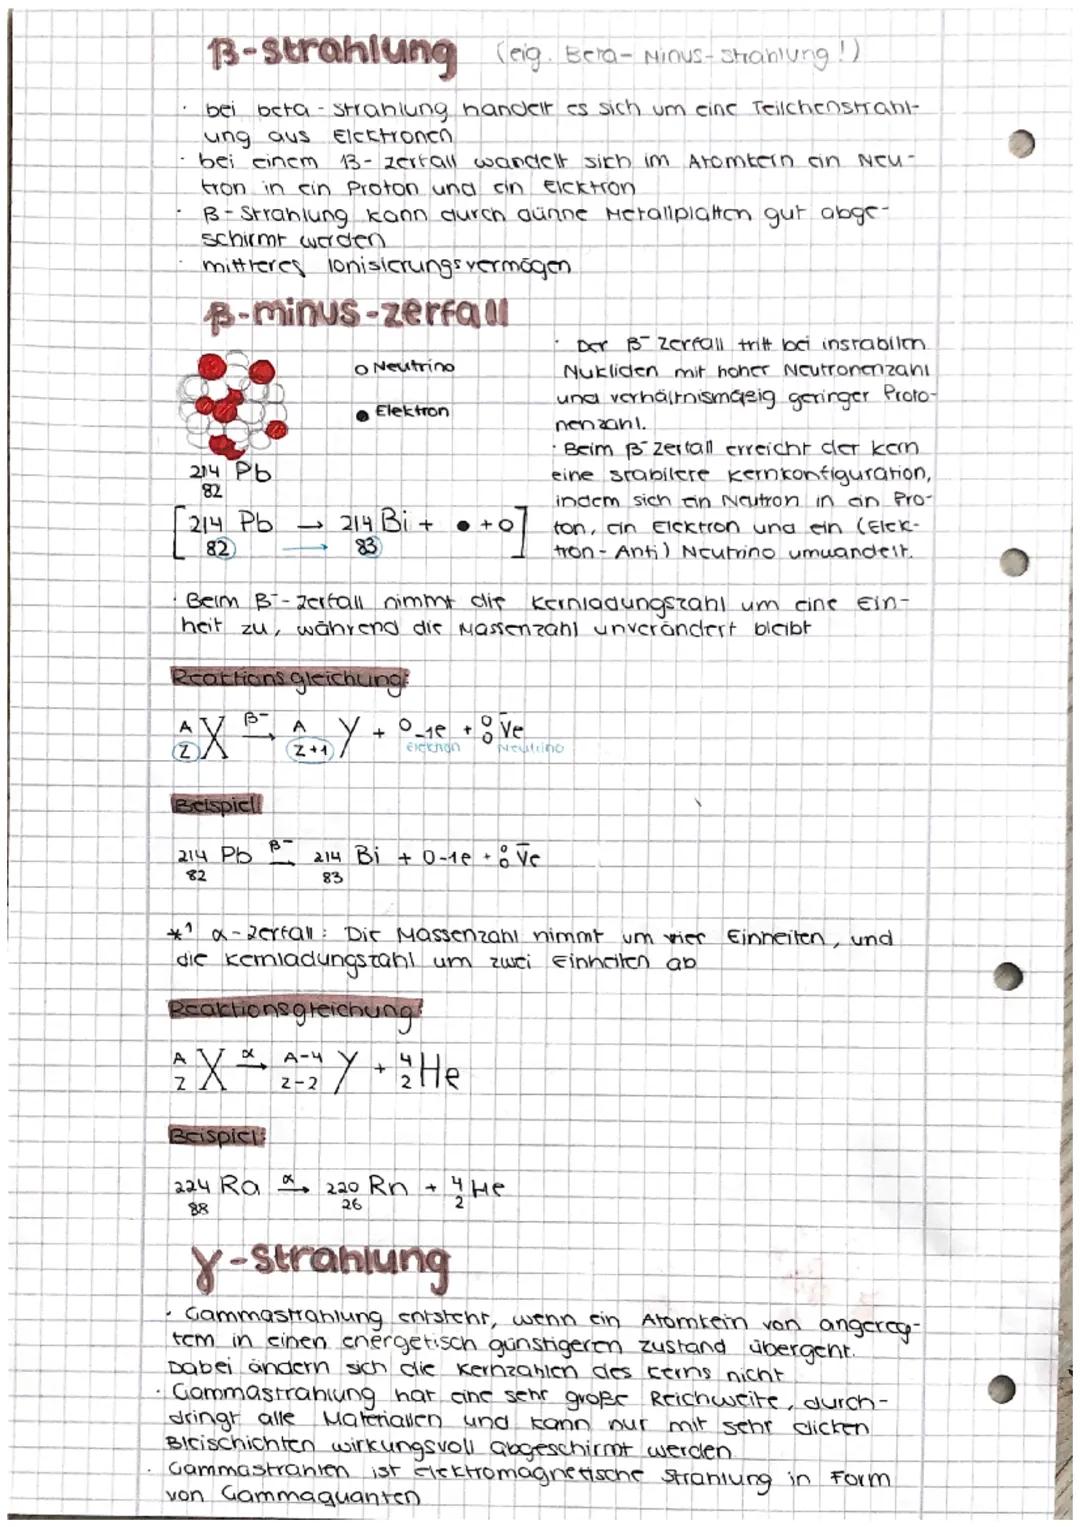 β-strahlung (eig. Beta-Minus-Strahlung!)
· bei beta-strahlung handelt es sich um eine Teilchenstrahl-
ung aus Elektronen
· bei einem β-zerfall wandelt sich im Atomkern ein Neu-
tron in ein Proton und ein Elektron
· β-Strahlung kann durch dünne Metallplatten gut abge-
schirmt werden
· mittleres Ionisierungsvermögen
β-minus-zerfall
o Neutrino
● Elektron
214 Pb
82
[214 Pb → 214 Bi + ● + o]
82 → 83
· Der β⁻ zerfall tritt bei instabilen
Nukliden mit hoher Neutronenzahl
und verhältnismäßig geringer Proto-
nenzahl.
· Beim β⁻ zerfall erreicht der kern
eine stabilere Kernkonfiguration,
indem sich ein Neutron in ein Pro-
ton, ein Elektron und ein (Elek-
tron-Anti) Neutrino umwandelt.
· Beim β⁻-zerfall nimmt die Kernladungszahl um eine Ein-
heit zu, während die Massenzahl unverändert bleibt
Reaktionsgleichung:
A X β⁻→ A Y + 0 -1e + 0 V̅e
Z Z+1 0
Elektron Neutrino
Beispiel:
214 Pb β⁻→ 214 Bi + 0-1e + 0 V̅e
82 83 0
*¹ α-zerfall: Die Massenzahl nimmt um vier Einheiten, und
die kernladungszahl um zwei Einheiten ab
Reaktionsgleichung:
A X α→ A-4 Y + 4 He
Z Z-2 2
Beispiel:
224 Ra α→ 220 Rn + 4 He
88 26 2
γ-Strahlung
· Gammastrahlung entsteht, wenn ein Atomkern von angereg-
tem in einen energetisch günstigeren zustand übergeht.
Dabei ändern sich die Kernzahlen des Kerns nicht
· Gammastrahlung hat eine sehr große Reichweite, durch-
dringt alle Materialien und kann nur mit sehr dicken
Bleischichten wirkungsvoll abgeschirmt werden
· Gammastrahlen ist elektromagnetische Strahlung in Form
von Gammaquanten